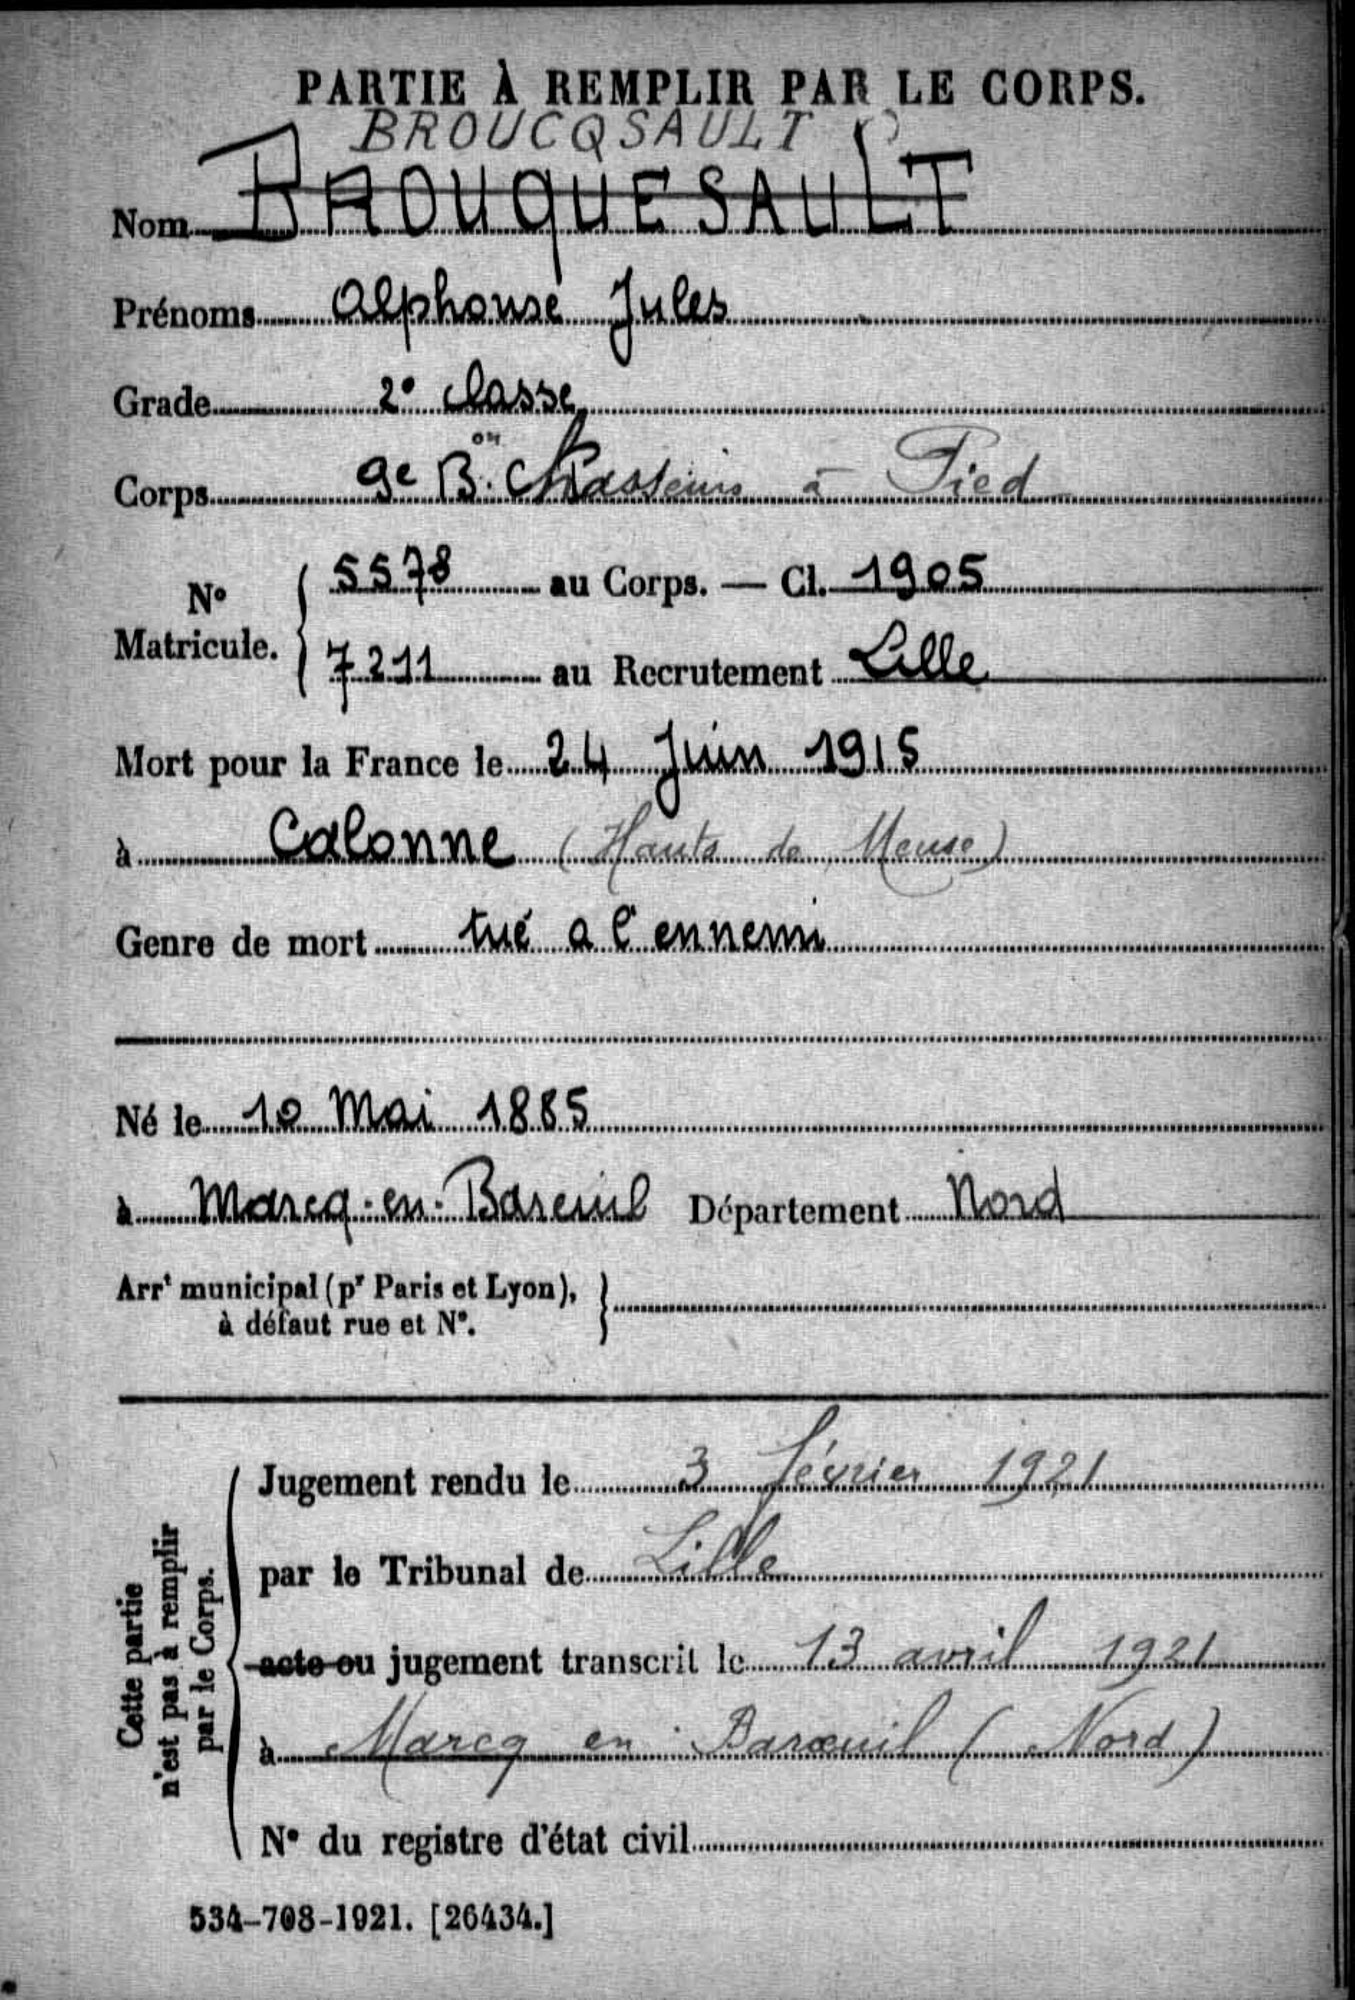 PARTIE À REMPLIR PAR LE CORPS.
BROUCQSAULT
Nom BROUQUESAULT
Prénoms Alphonse Jules
Grade 2e classe
Corps 9e Bon Chasseurs à Pied
No Matricule. { 5578 au Corps. — Cl. 1905
7211 au Recrutement Lille
Mort pour la France le 24 Juin 1915
à Calonne (Hauts de Meuse)
Genre de mort tué a l'ennemi
Né le 10 Mai 1885
à Marcq-en-Bareuil Département Nord
Arrt municipal (pr Paris et Lyon), }
à défaut rue et No.
Cette partie
n'est pas à remplir
par le Corps.
Jugement rendu le 3 février 1921
par le Tribunal de Lille
acte ou jugement transcrit le 13 avril 1921
à Marcq en Barœuil (Nord)
No du registre d'état civil
534-708-1921. [26434.]